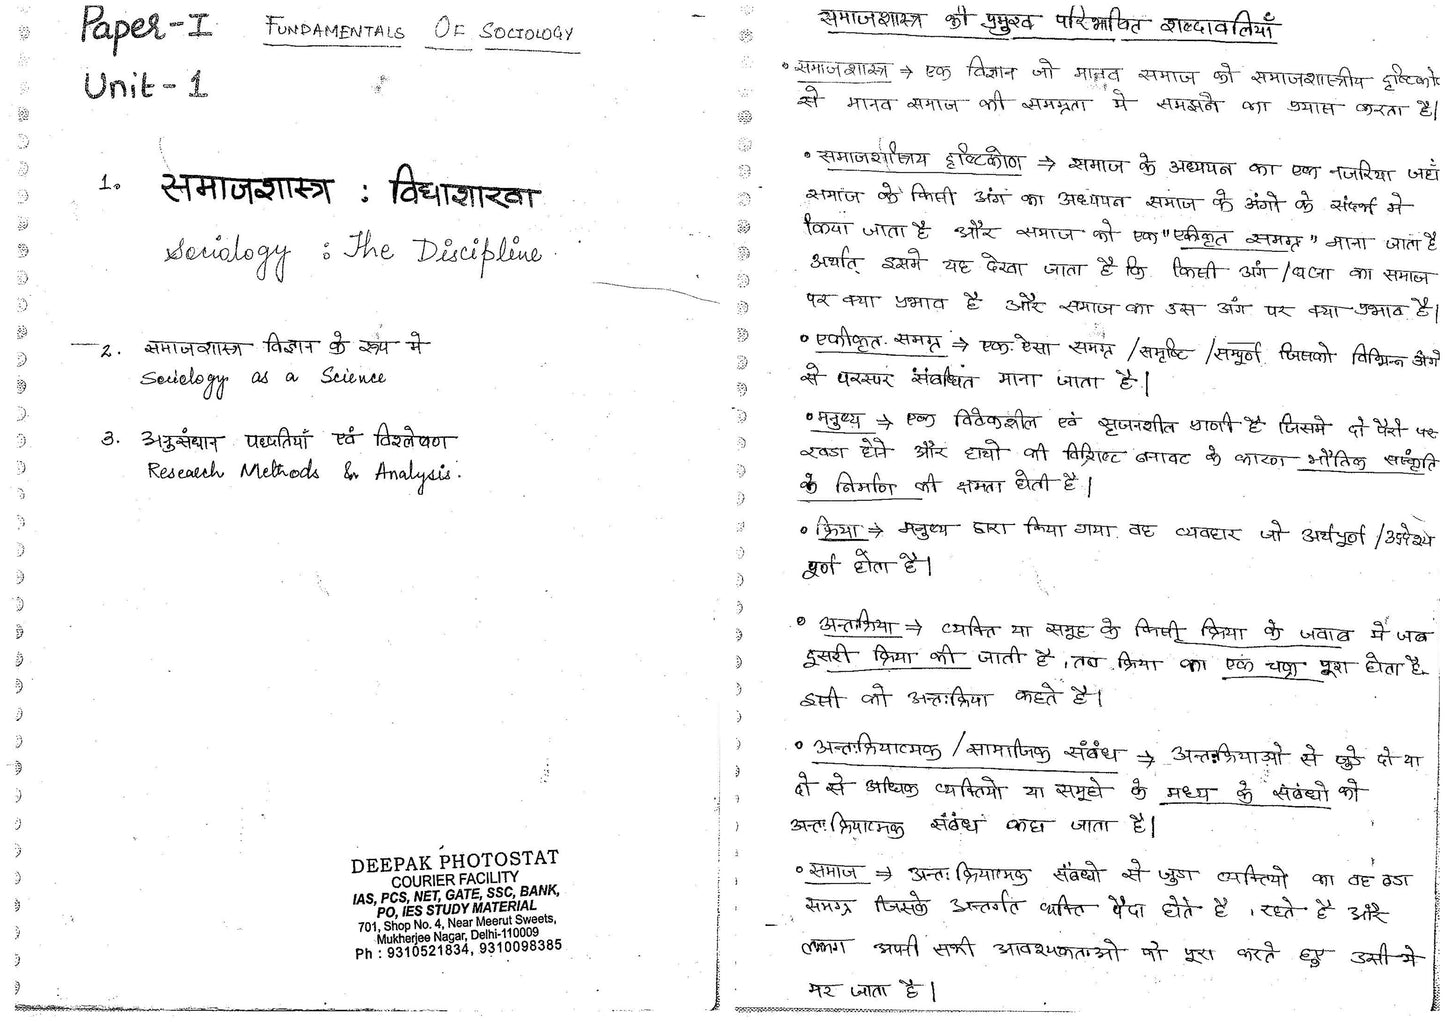 Paper-I FUNDAMENTALS OF SOCIOLOGY
Unit-1
1. समाजशास्त्र : विधाशाखा
Sociology : The Discipline.
2. समाजशास्त्र विज्ञान के रूप में
Sociology as a Science
3. अनुसंधान पध्पतियाँ एवं विश्लेषण
Research Methods & Analysis.
DEEPAK PHOTOSTAT
COURIER FACILITY
IAS, PCS, NET, GATE, SSC, BANK,
PO, IES STUDY MATERIAL
701, Shop No. 4, Near Meerut Sweets,
Mukherjee Nagar, Delhi-110009
Ph : 9310521834, 9310098385
समाजशास्त्र की प्रमुख परिभाषित शब्दावलियाँ
• समाजशास्त्र → एक विज्ञान जो मानव समाज को समाजशास्त्रीय दृष्टिको
से मानव समाज की समग्रता मे समझने का प्रयास करता है|
• समाजशास्त्रिय दृष्टिकोण → समाज के अध्ययन का एक नजरिया जहाँ
समाज के किसी अंग का अध्ययन समाज के अंगो के संदर्भ मे
किया जाता है और समाज को एक "एकीकृत समग्र" माना जाता है
अर्थात् इसमे यह देखा जाता है कि किसी अंग / घटना का समाज
पर क्या प्रभाव है और समाज का उस अंग पर क्या प्रभाव है|
• एकीकृत समग्र → एक ऐसा समग्र / समृष्टि / सम्पूर्ण जिसको विभिन्न अंगो
से परस्पर संबंधित माना जाता है|
• मनुष्य → एक विवेकशील एवं सृजनशील प्राणी है जिसमे दो पैरो पर
खडा होने और हाथो की विशिष्ट बनावट के कारण भौतिक संस्कृति
के निर्माण की क्षमता होती है|
• क्रिया → मनुष्य द्वारा किया गया वह व्यवहार जो अर्थपूर्ण / उद्देश्य
पूर्ण होता है|
• अन्तःक्रिया → व्यक्ति या समूह के किसी क्रिया के जवाब में जब
दूसरी क्रिया की जाती है, तब क्रिया का एक चक्र पूरा होता है.
इसी को अन्तःक्रिया कहते है|
• अन्तःक्रियात्मक / सामाजिक संबंध → अन्तःक्रियाओ से जुडे दो या
दो से अधिक व्यक्तियो या समूहो के मध्य के संबंधो को
अन्तःक्रियात्मक संबंध कहा जाता है|
• समाज → अन्तःक्रियात्मक संबंधो से जुडा व्यक्तियो का वह बडा
समग्र जिसके अन्तर्गत व्यक्ति पैदा होते है, रहते है और
लगभग अपनी सभी आवश्यकताओ को पूरा करते हुए उसी मे
मर जाता है|